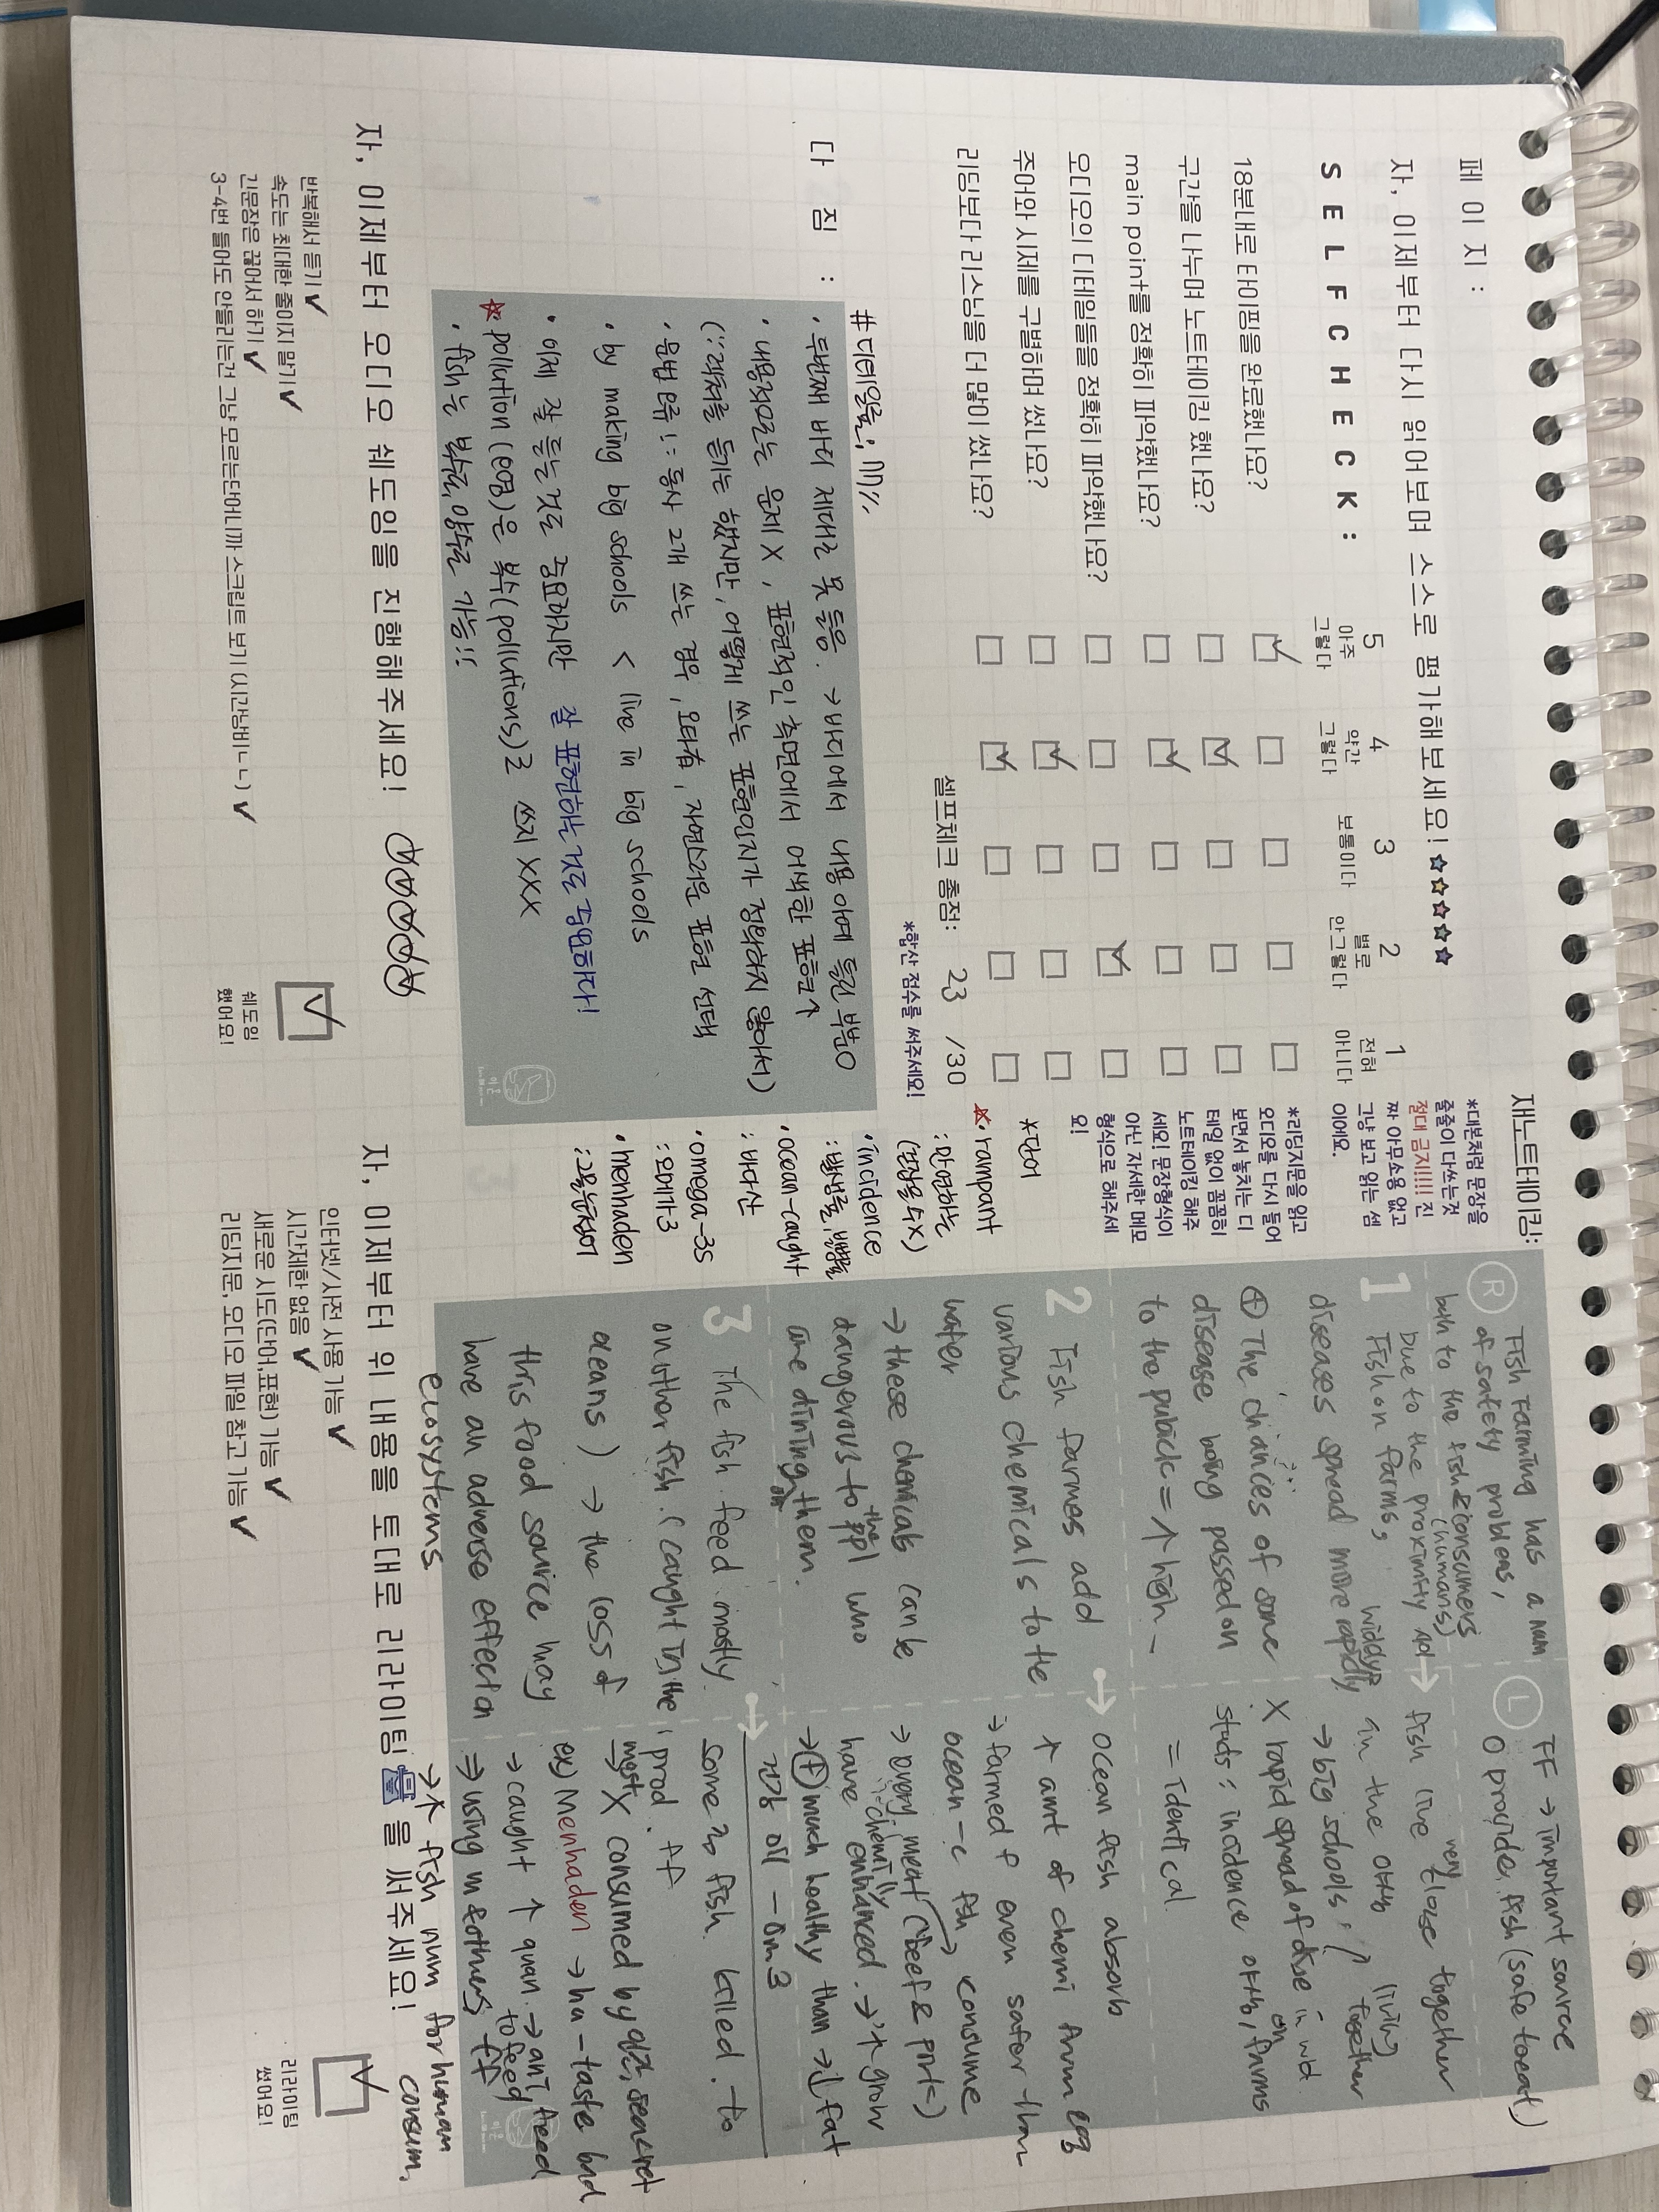 페 이 지 :
자, 이제부터 다시 읽어보며 스스로 평가해보세요!
S E L F C H E C K :
5 아주 그렇다
4 약간 그렇다
3 보통이다
2 별로 안그렇다
1 전혀 아니다
18분내로 타이핑을 완료했나요?
구간을 나누며 노트테이킹 했나요?
main point를 정확히 파악했나요?
오디오의 디테일들을 정확히 파악했나요?
주어와 시제를 구별하며 썼나요?
리딩보다 리스닝을 더 많이 썼나요?
셀프체크 총점: 23 /30
*합산 점수를 써주세요!
다 짐 :
# 디테일들;
· 두번째 바디 제대로 못 들음. → 바디에서 내용 아예 틀린 부분 O
· 내용적으로는 문제 X, 표현적인 측면에서 어색한 표현↑
(∵ 래퍼를 듣기는 했지만, 어떻게 쓰는 표현인지가 정확하지 않아서)
· 문법 오류!: 동사 2개 쓰는 경우, 오타쓰, 자연스러운 표현 선택
· by making big schools < live in big schools
· 이제 잘 듣는 것도 중요하지만 잘 표현하는 것도 중요하다!
· pollution (오염)은 복수(pollutions)로 쓰지 XXX
· fish는 복수, 단수로 가능!!
자, 이제부터 오디오 쉐도잉을 진행해주세요!
반복해서 듣기 ✔
속도는 최대한 줄이지 말기 ✔
긴문장은 끊어서 하기 ✔
3-4번 들어도 안들리는건 그냥 모르는단어니까 스크립트 보기 (시간낭비ㄴㄴ) ✔
쉐도잉
했어요!
재노트테이킹:
*대본처럼 문장을
줄줄이 다쓰는것
절대 금지!!!! 진
짜 아무소용 없고
그냥 보고 읽는 셈
이에요.
*리딩지문을 읽고
오디오를 다시 들어
보면서 놓치는 디
테일 없이 꼼꼼히
노트테이킹 해주
세요! 문장형식이
아닌 자세한 메모
형식으로 해주세
요!
*단어
· rampant
: 만연하는
· incidence
: 발생률, 발병률
· ocean-caught
: 바다산
· omega-3s
: 오메가3
· menhaden
R
Fish Farming has a num
of safety problems,
both to the fish & consumers
(humans)
1
Due to the proximity of
fish on farms,
diseases spread more rapidly
⊕ The chances of some
disease being passed on
to the public = ↑ high
2
Fish farmes add
various chemicals to the
water
→ these chemicals can be
dangerous to the ppl who
are dining on them.
3
The fish feed mostly
on other fish. (caught in the
oceans) → the loss of
this food source may
have an adverse effect on
ecosystems
L
FF → important source
O provide fish (safe to eat)
fish live very close together
in the
→ big schools, living together
X rapid spread of dise in wd.
studs: incidence on farms
= identical.
ocean fish absorb
↑ amt of chemi from
→ farmed f even safer than
ocean-c fish → consume
→ every meat (beef & pork)
have chemi enhanced. → ↑ grow
→ ⊕ much healthy than → ↓ fat
oil - Om3
some fish killed. to
prod. ff
→ most X consumed by
ex) Menhaden → ha-taste bad
→ caught ↑ quan. → to feed
⇒ using m & others ff
→ ↑ fish num for human
consum.
자, 이제부터 위 내용을 토대로 리라이팅을 써주세요!
인터넷/사전 사용 가능 ✔
시간제한 없음 ✔
새로운 시도(단어,표현) 가능 ✔
리딩지문, 오디오 파일 참고 가능 ✔
리라이팅
썼어요!